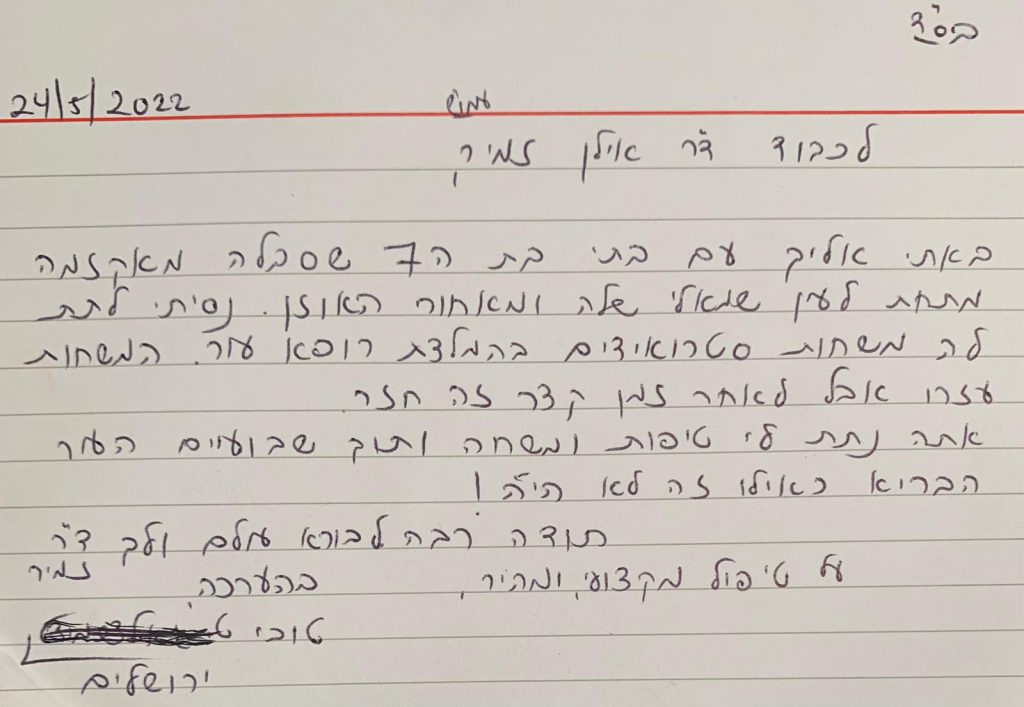 בס"ד
24/5/2022
עמוש
לכבוד ד"ר אילן זמיר,
באתי אליך עם בתי בת ה7 שסבלה מאקזמה
מתחת לעין שמאלי שלה ומאחורי האוזן. נסיתי לתת
לה משחות סטרואידים בהמלצת רופא עור. המשחות
עזרו אבל לאחר זמן קצר זה חזר.
אתה נתת לי טיפות ומשחה ותוך שבועיים העור
הבריא כאילו זה לא היה!
תודה רבה לבורא עולם ולך ד"ר
זמיר
על טיפול מקצועי ומהיר,
בהערכה,
טובי
ירושלים